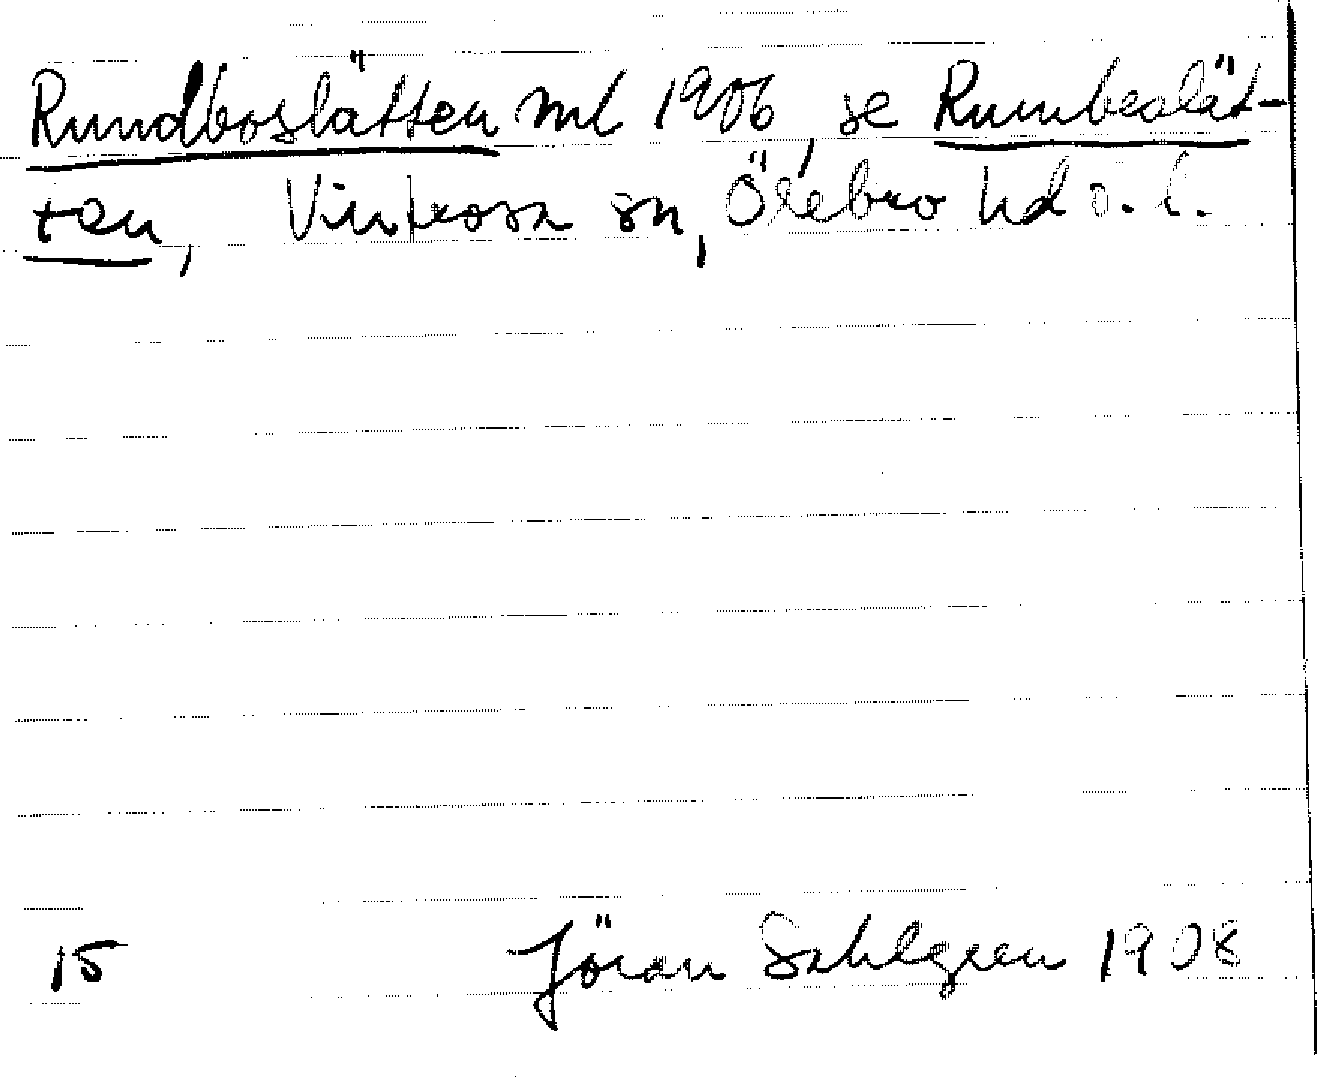 Rundboslätten ml 1906, se Rumbeslät-
ten, Vintrosa sn, Örebro hd o. l.
15 Jöran Sahlgren 1908